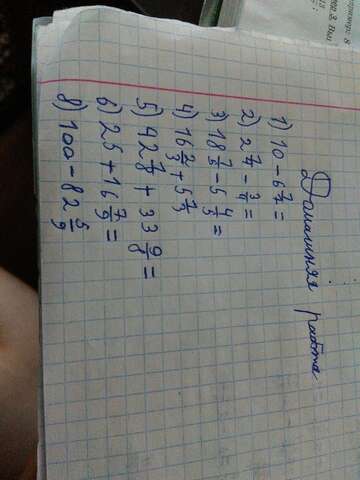 Домашняя работа
1) 10 - 6 1/7 =
2) 2 1/4 - 3/4 =
3) 18 1/5 - 5 4/5 =
4) 16 2/3 + 5 1/3
5) 42 7/8 + 33 9/8 =
6) 25 + 16 7/9 =
8) 100 - 82 5/9